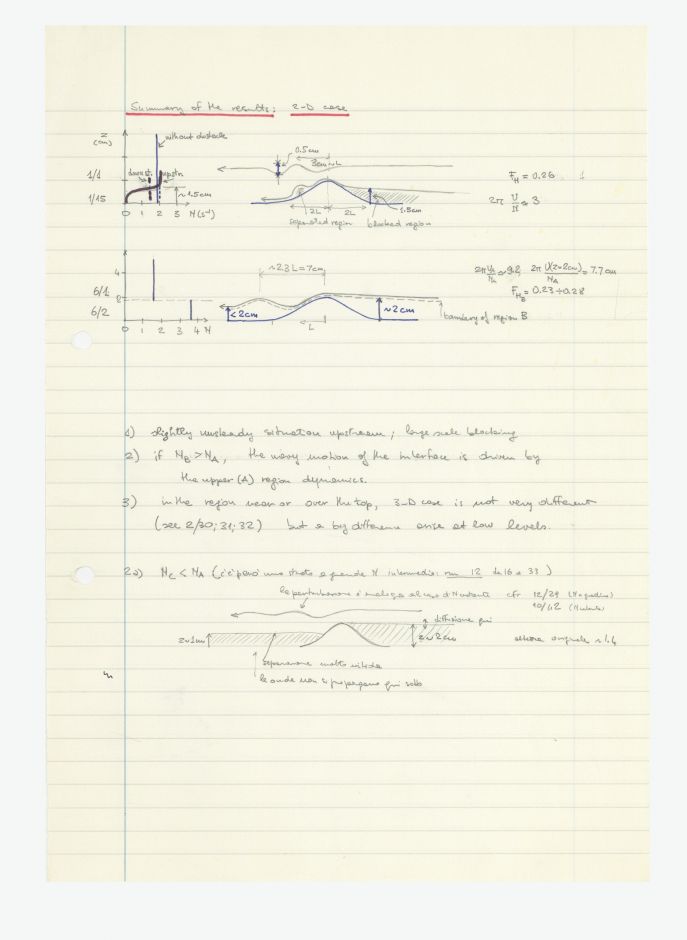 Summary of the results: 2-D case
z (cm)
without obstacle
0.5cm
3cm~L
downst. upstr.
1/1
1/15
~1.5cm
0 1 2 3 N(s⁻¹)
2L 2L
1.5cm
separated region blocked region
F_H = 0.26
2π U/N ≈ 3
4
2
6/1
6/2
0 1 2 3 4 N
~2.3 L=7cm
<2cm
L
~2cm
boundary of region B
= 7.7 cm
F_HB = 0.23÷0.28
1) slightly unsteady situation upstream; large scale blocking
2) if N_B > N_A, the wavy motion of the interface is driven by
the upper (A) region dynamics.
3) in the region near or over the top, 3-D case is not very different
(see 2/30; 31; 32) but a big difference arise at low levels.
2a) N_C < N_A (c'è però uno strato a grande N intermedio: run 12 da 16 a 33)
la perturbazione è analoga al caso di N costante cfr 12/29
10/42
diffusione qui
z~1cm
z~2cm
altezza originale ~1.4
separazione molto ridotta
le onde non si propagano qui sotto